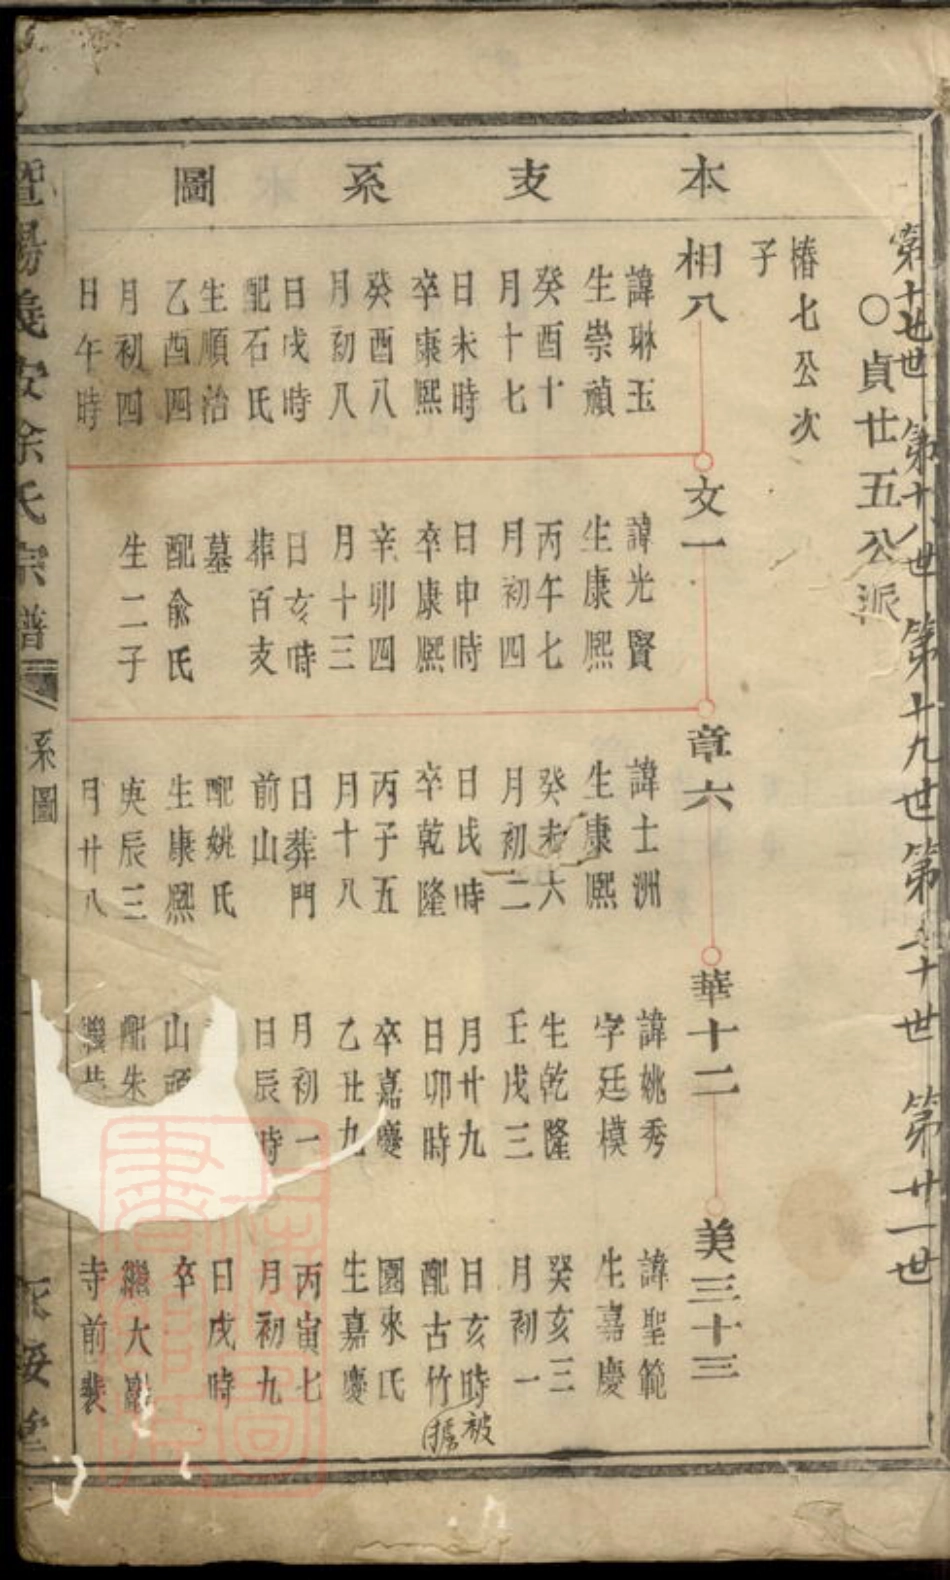 第十七世
第十八世
第十九世
第二十世
第廿一世
○貞廿五公派
本支系圖
椿七公次
子
相八
諱琳玉
生崇禎
癸酉十
月十七
日未時
卒康熙
癸酉八
月初八
日戌時
配石氏
生順治
乙酉四
月初四
日午時
文一
諱光賢
生康熙
丙午七
月初四
日申時
卒康熙
辛卯四
月十三
日亥時
葬百支
墓
配俞氏
生二子
章六
諱士洲
生康熙
癸未六
月初二
日氏時
卒乾隆
丙子五
月十八
日葬門
前山
配姚氏
生康熙
庚辰三
月廿八
華十二
諱姚秀
字廷模
生乾隆
壬戌三
月廿九
日卯時
卒嘉慶
乙丑九
月初一
日辰時
山
配朱
美三十三
諱聖範
生嘉慶
癸亥三
月初一
日亥時
被
配古竹
擄
園來氏
生嘉慶
丙寅七
月初九
日戌時
卒
繼大
寺前裴
暨陽義安徐氏宗譜
系圖